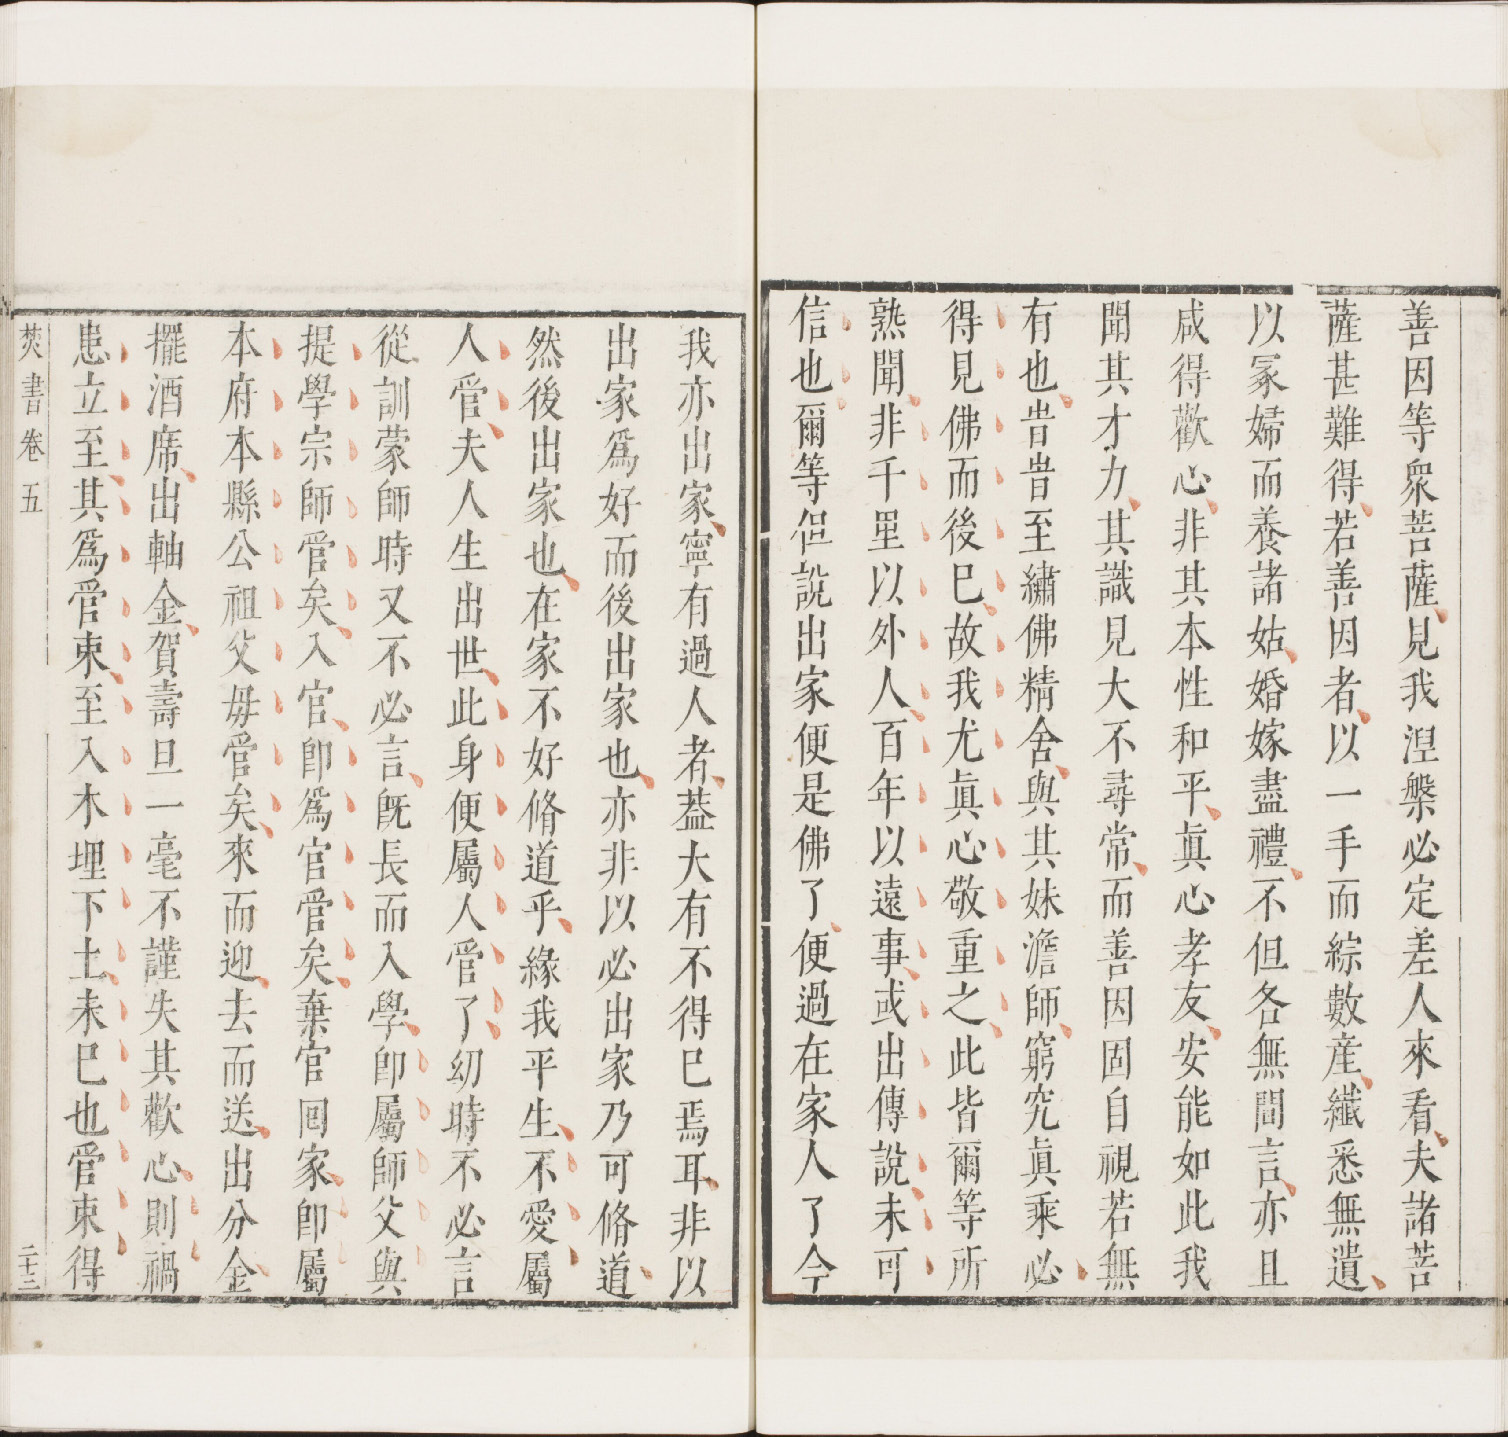 善因等衆菩薩見我涅槃必定差人來看夫諸菩
薩甚難得若善因者以一手而綜數産纖悉無遺
以冢婦而養諸姑婚嫁盡禮不但各無間言亦且
咸得歡心非其本性和平眞心孝友安能如此我
聞其才力其識見大不尋常而善因固自視若無
有也昔昔至繡佛精舍與其妹澹師窮究眞乘必
得見佛而後已故我尤眞心敬重之此皆爾等所
熟聞非千里以外人百年以遠事或出傳說未可
信也爾等但說出家便是佛了便過在家人了今
我亦出家寧有過人者葢大有不得已焉耳非以
出家爲好而後出家也亦非以必出家乃可脩道
然後出家也在家不好脩道乎緣我平生不愛屬
人管夫人生出世此身便屬人管了幼時不必言
從訓蒙師時又不必言旣長而入學卽屬師父與
提學宗師管矣入官卽爲官管矣棄官囘家卽屬
本府本縣公祖父母管矣來而迎去而送出分金
擺酒席出軸金賀壽旦一毫不謹失其歡心則禍
患立至其爲管束至入木埋下土未已也管束得
焚書卷五
二十三